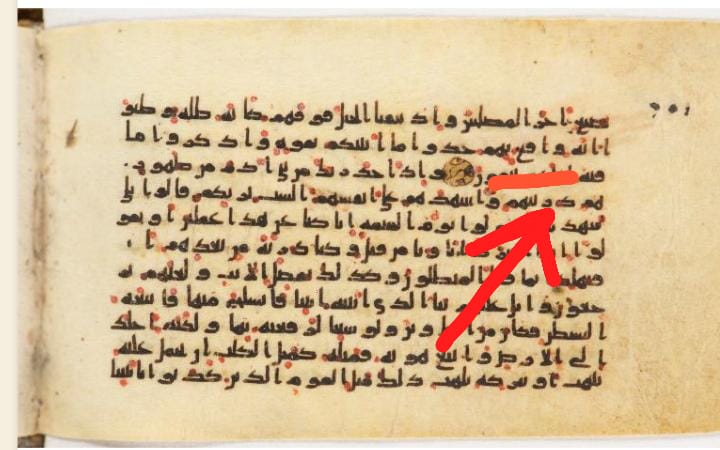 نضيع اجر المصلحين واذ نتقنا الجبل فوقهم كانه ظله وظنوا
انه واقع بهم خذوا ما اتينكم بقوه واذكروا ما
فيه واذ اخذ ربك من بني ادم من ظهور
هم ذريتهم واشهدهم على انفسهم الست بربكم قالوا بلى
شهدنا تقولوا يوم القيمه انا كنا عن هذا غفلين او تقو
لوا من قبل وكنا ذريه من بعدهم ا
فتهلكنا بما المبطلون وكذلك نفصل الايت ولعلهم ير
جعون واتل نبا الذي اتينه ايتنا فانسلخ منها فاتبعه
الشيطن فكان من ولو شينا لرفعنه بها ولكنه اخلد
الى الارض واتبع هويه فمثله كمثل الكلب ان تحمل عليه
يلهث او تتركه يلهث ذلك مثل القوم الذين كذبوا بايتنا